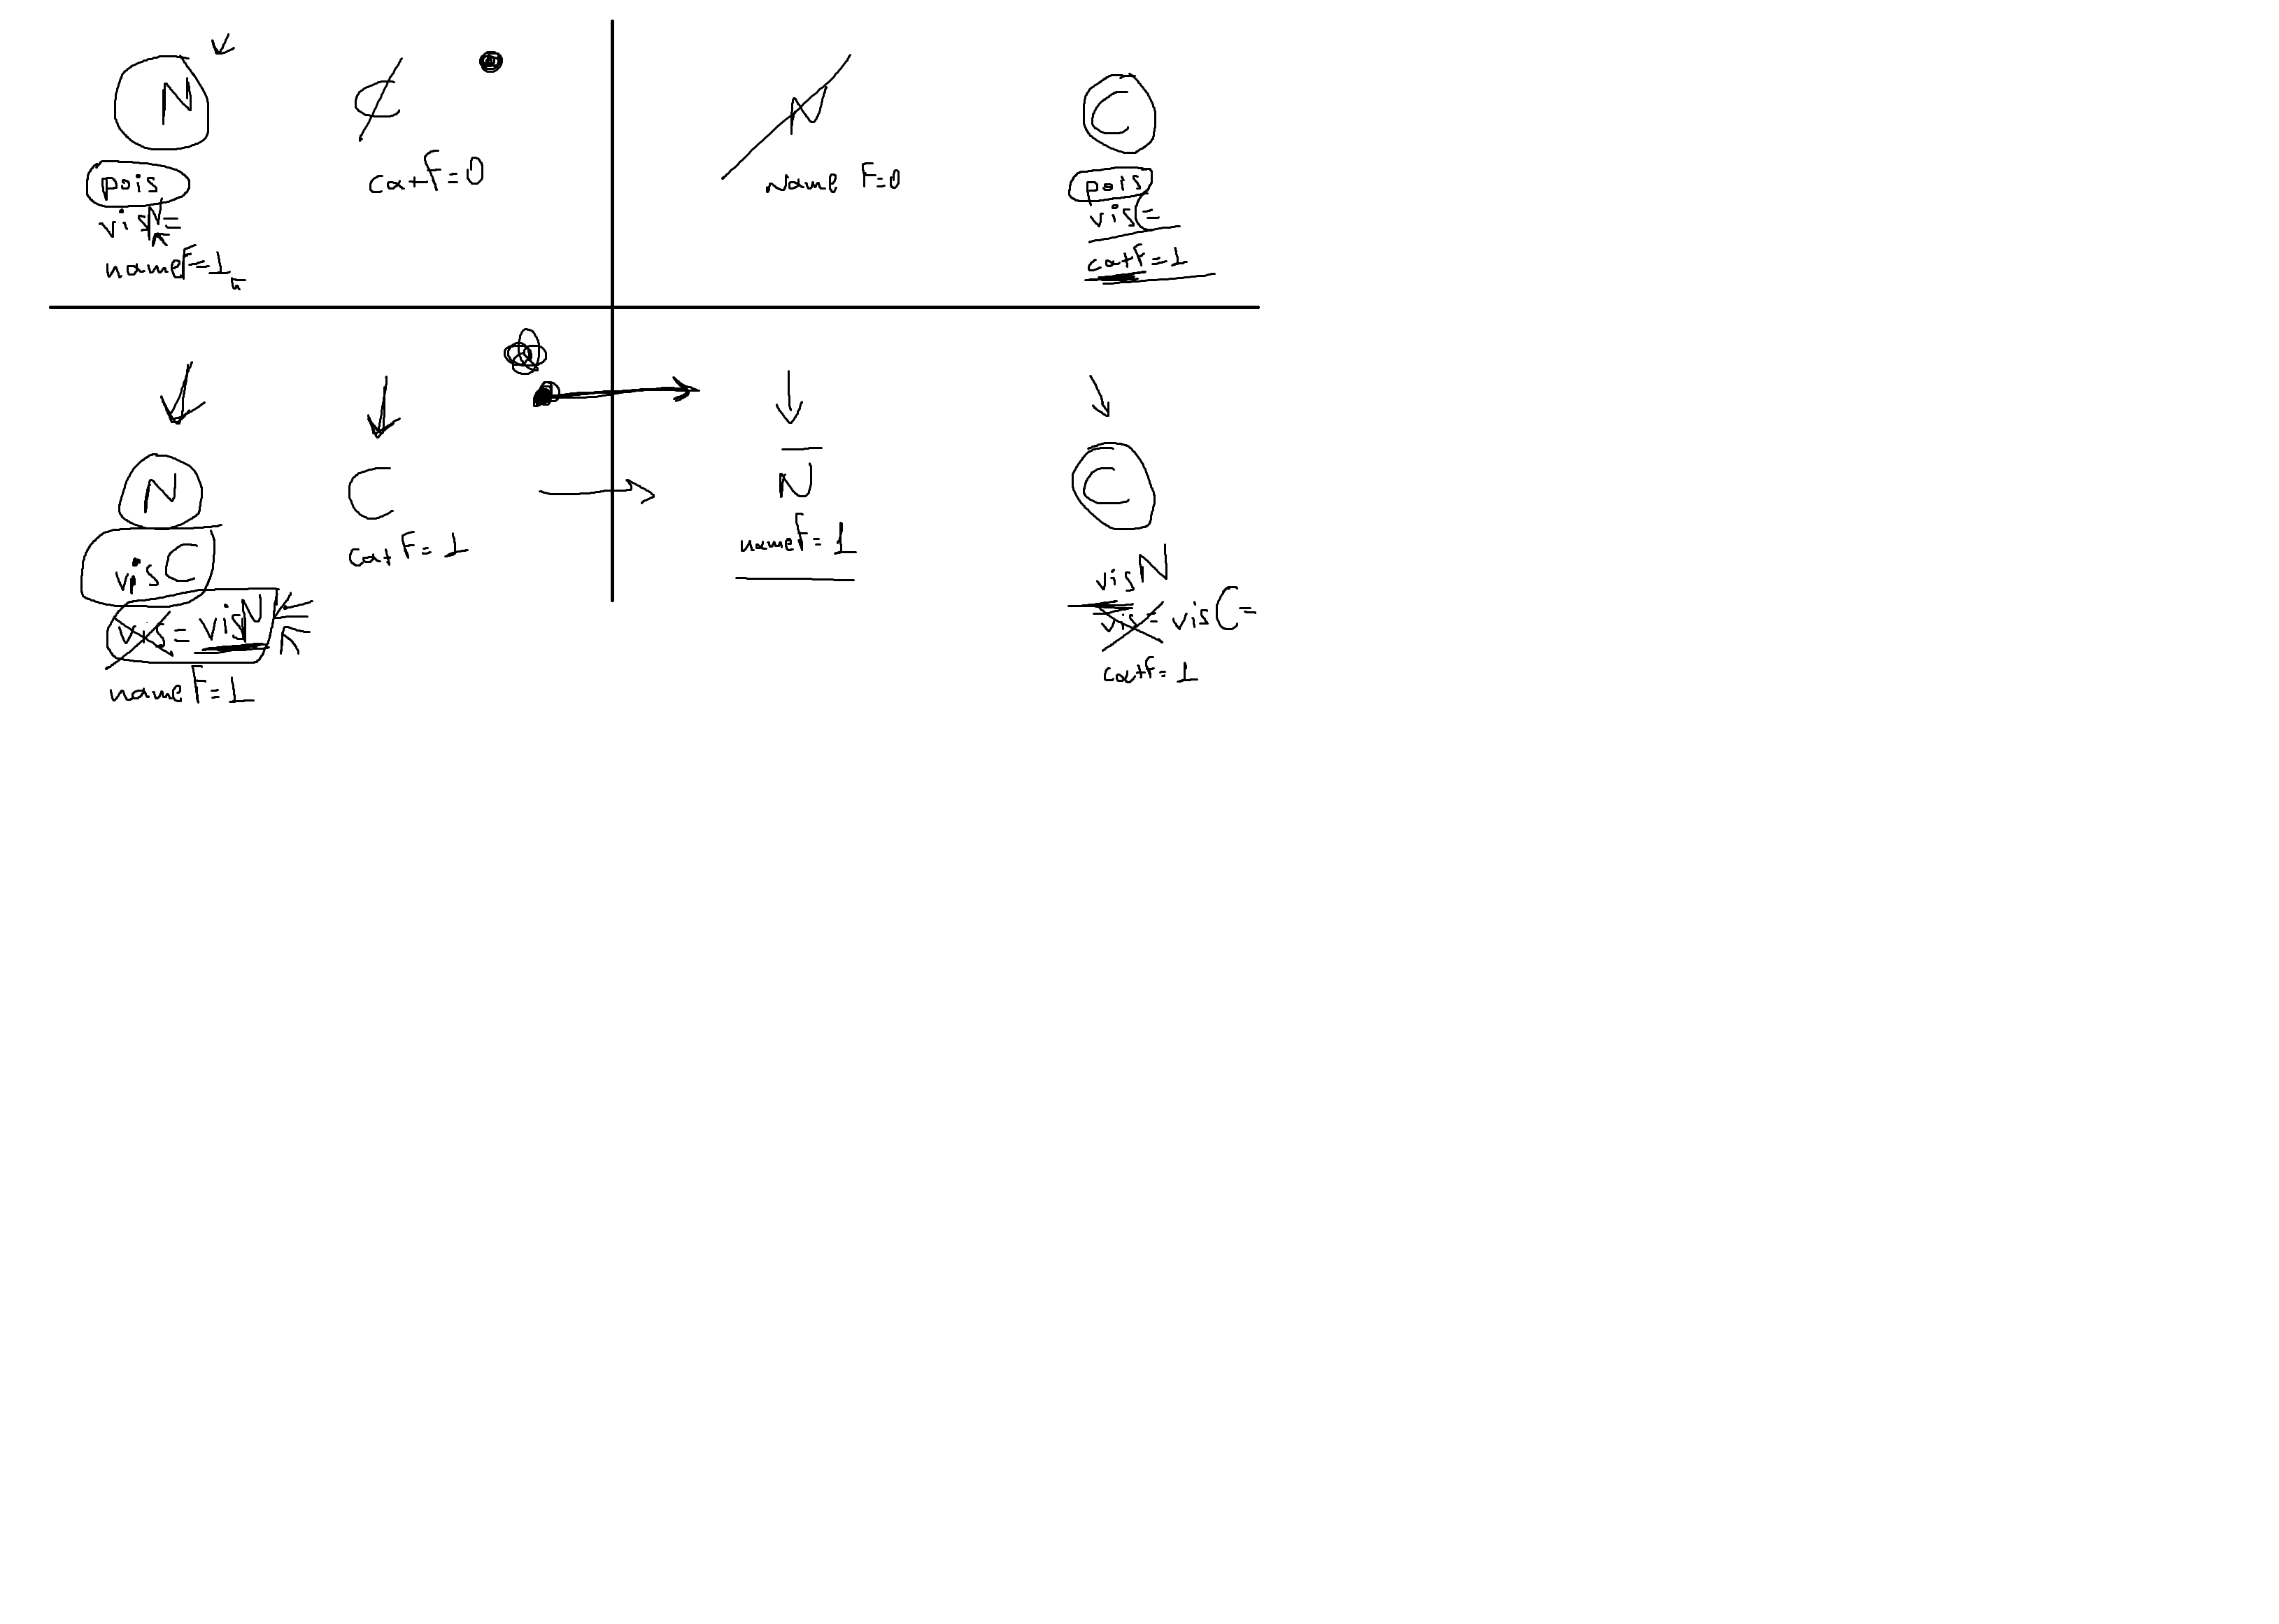 N C
pois
visN=
nameF=1
catF=0
N
Name F=0
C
pois
visC=
catF=1
N C
visC
vis=visN
nameF=1
catF=1
N
nameF=1
C
visN
vis= visC=
catF=1